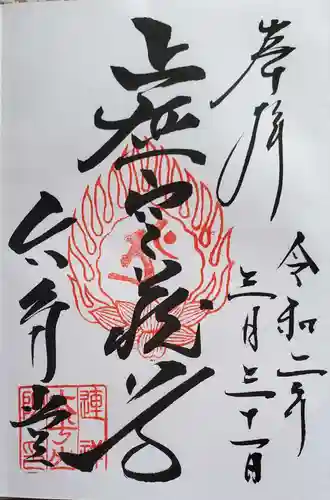 奉拝
令和二年
三月三十一日
虚空蔵尊
六角堂